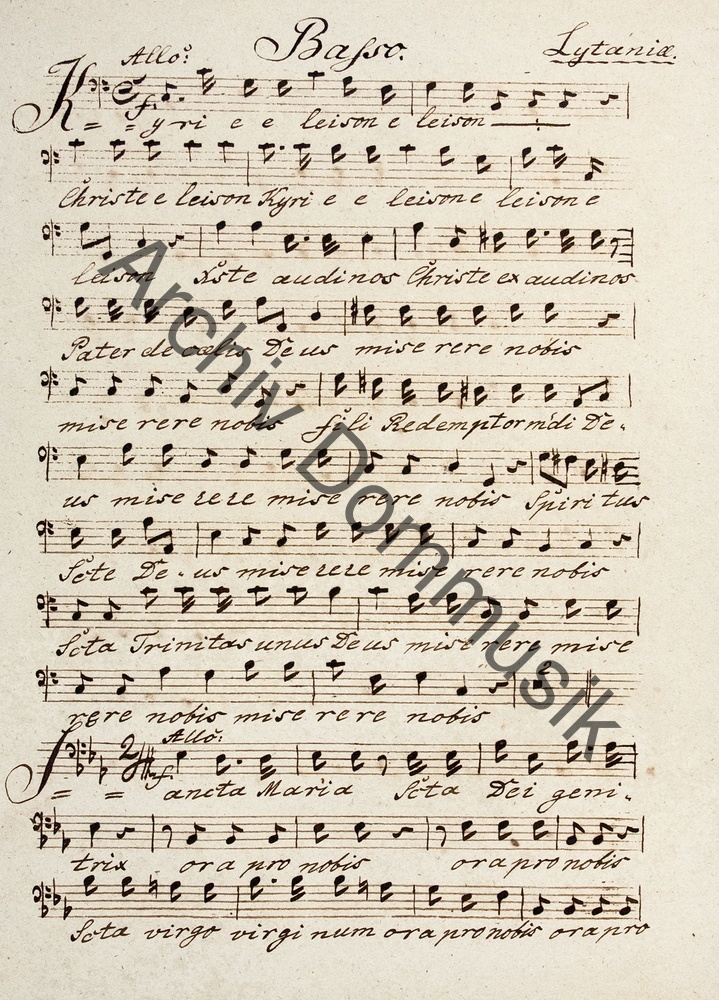 Allo: Basso. Lytaniæ.
f.
K = = yri e e leison e leison
Christe e leison Kyri e e leison e leison e
leison Xste audi nos Christe ex audi nos
Pater de cælis De us mise rere nobis
mise rere nobis fili Redemptor mdi De-
us mise rere mise rere nobis Spiri tus
Scte De - us mise rere mise rere nobis
Scta Trinitas unus De us mise rere mise
rere nobis mise re re nobis
Allo:
2
f.
S = = ancta Maria Scta Dei geni-
trix ora pro nobis ora pro nobis
Scta virgo virgi num ora pro nobis ora pro
Archiv Dommusik